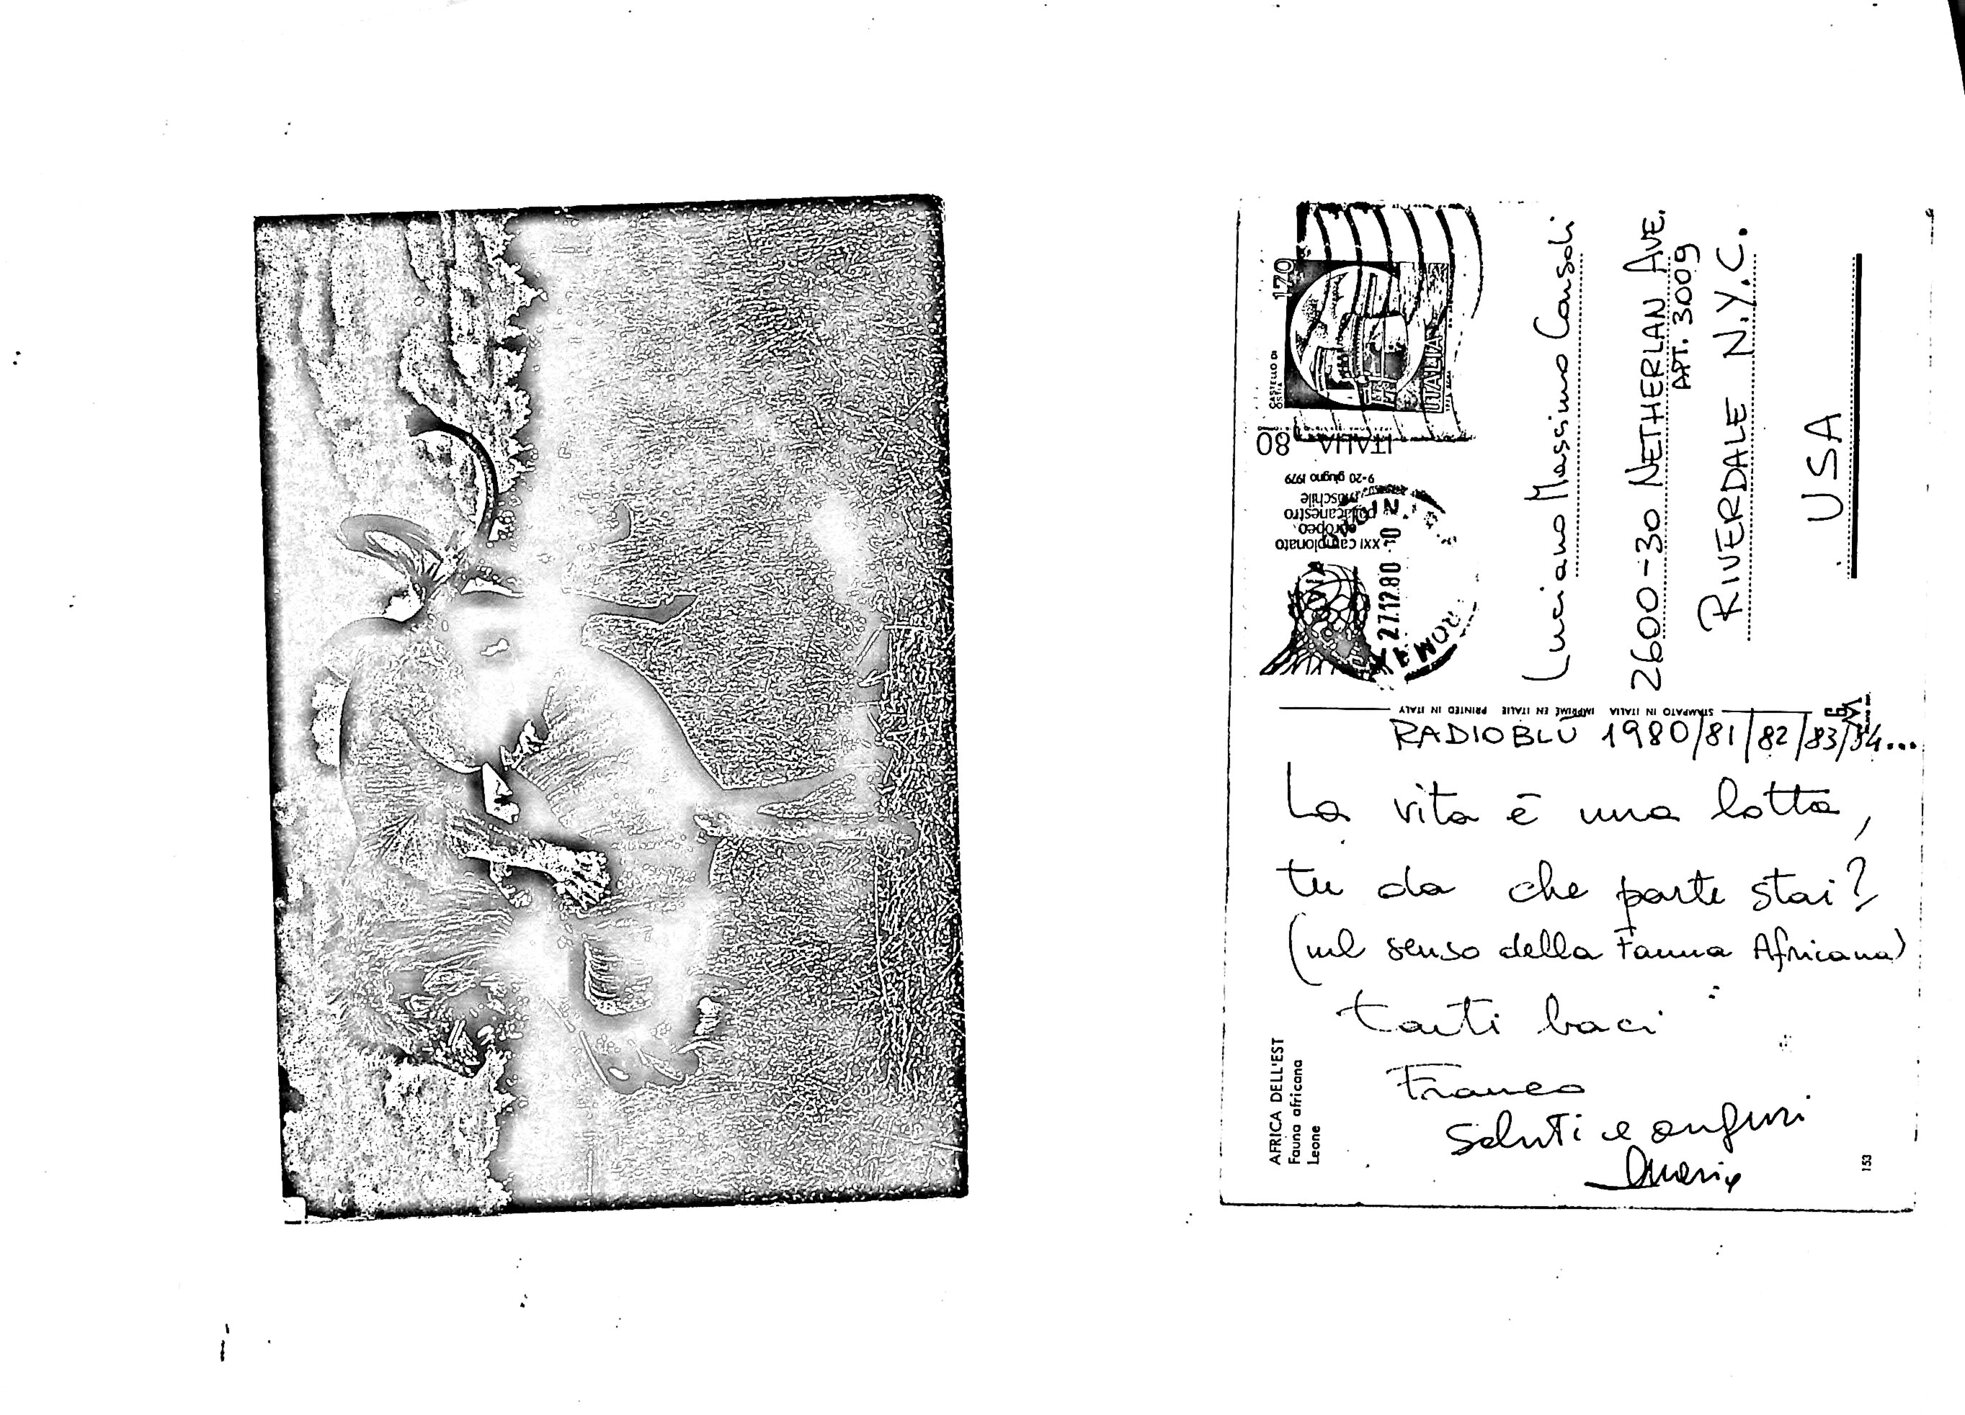 170
CASTELLO DI
OSTIA
ITALIA
ITALIA 80
XXI campionato
europeo
pallacanestro
maschile
9-20 giugno 1979
ROMA
27.12.80
Luciano Massimo Consoli
2600-30 NETHERLAN AVE.
APT. 3009
RIVERDALE N.Y.C.
USA
STAMPATO IN ITALIA IMPRIMÉ EN ITALIE PRINTED IN ITALY
RADIOBLU 1980/81/82/83/84...
La vita è una lotta,
tu da che parte stai?
(nel senso della Fauna Africana)
tanti baci
Franco
Saluti e auguri
AFRICA DELL'EST
Fauna africana
Leone
153